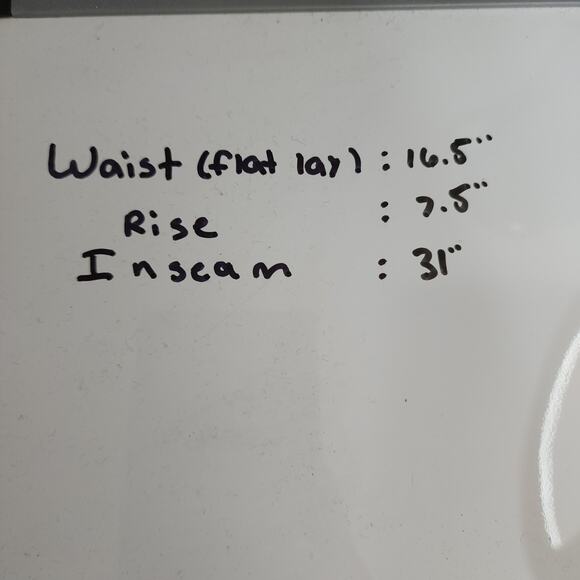 Waist (flat lay) : 16.5"
Rise : 7.5"
Inseam : 31"